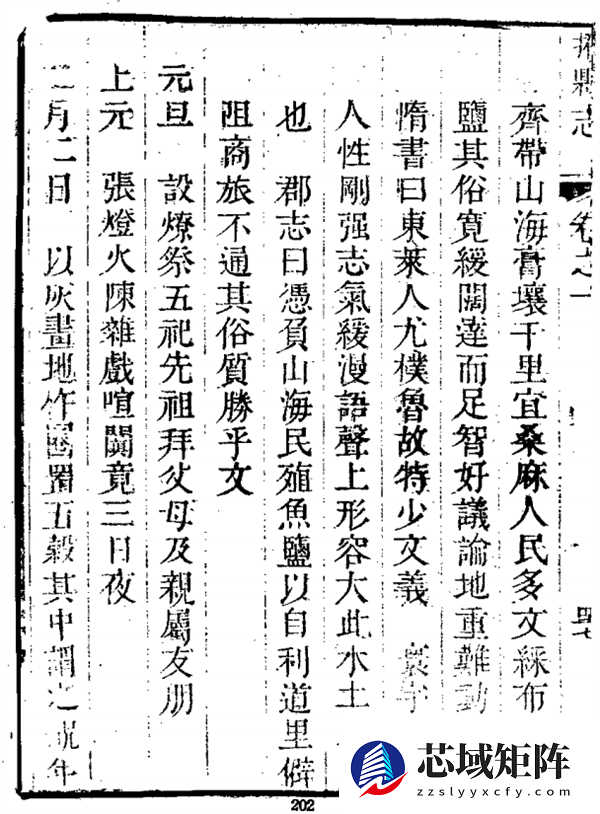 志
卷之一
齊帶山海膏壤千里宜桑麻人民多文綵布
鹽其俗寬緩闊達而足智好議論地重難動
隋書曰東萊人尤樸魯故特少文義　寰宇
人性剛强志氣緩漫語聲上形容大此水土
也　郡志曰憑負山海民殖魚鹽以自利道里僻
阻商旅不通其俗質勝乎文
元旦　設燎祭五祀先祖拜父母及親屬友朋
上元　張燈火陳雜戲喧闐竟三日夜
二月二日　以灰畫地作囤置五穀其中謂之
202
芯域矩阵
zzslyyxcfy.com